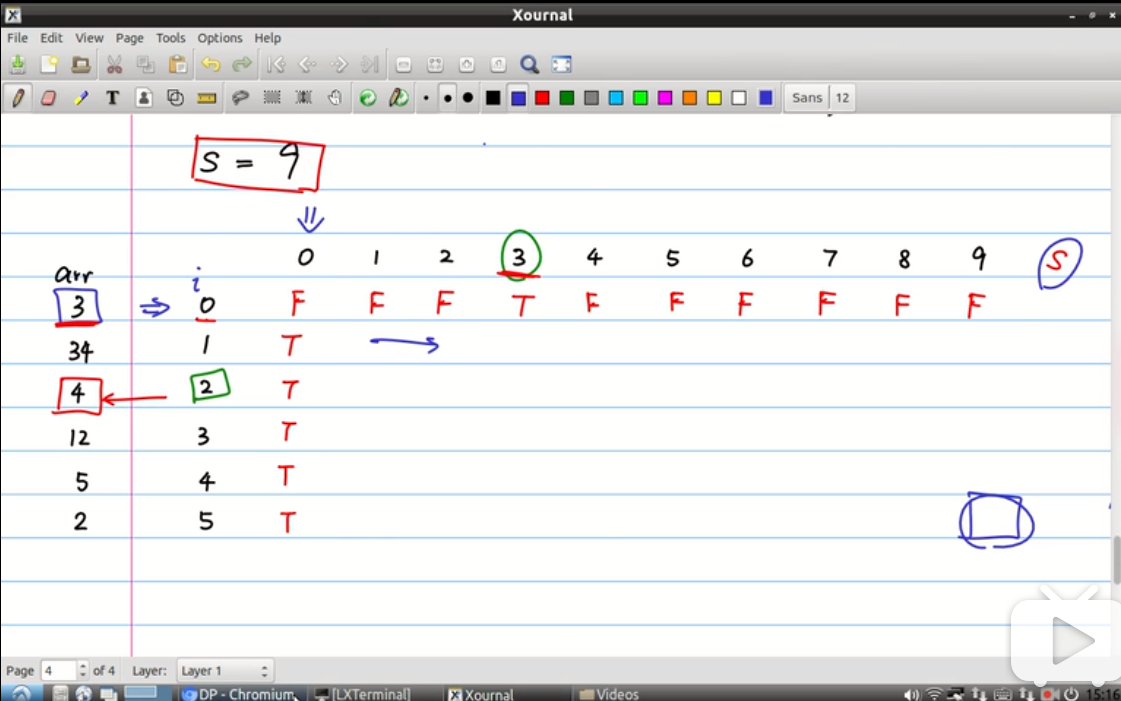 Xournal
File Edit View Page Tools Options Help
T Sans 12
S = 9
0 1 2 3 4 5 6 7 8 9 S
arr i
3 0 F F F T F F F F F F
34 1 T
4 2 T
12 3 T
5 4 T
2 5 T
Page 4 of 4 Layer: Layer 1
DP - Chromium [LXTerminal] Xournal Videos 15:16